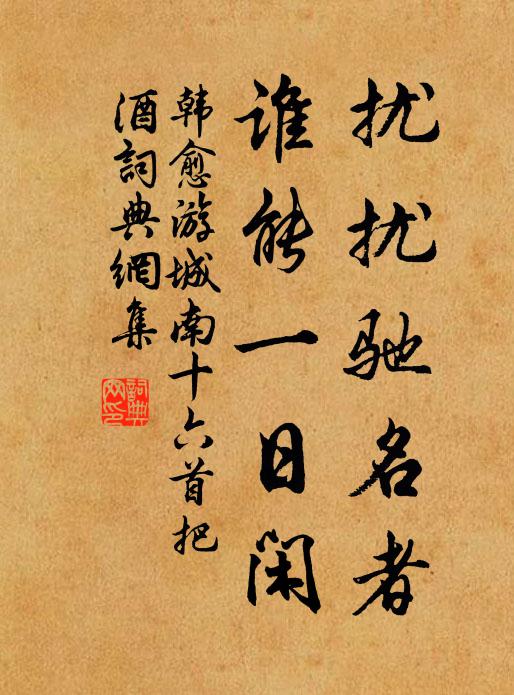 扰扰驰名者
谁能一日闲
韩愈游城南十六首把
酒詞典網集
詞典
网印